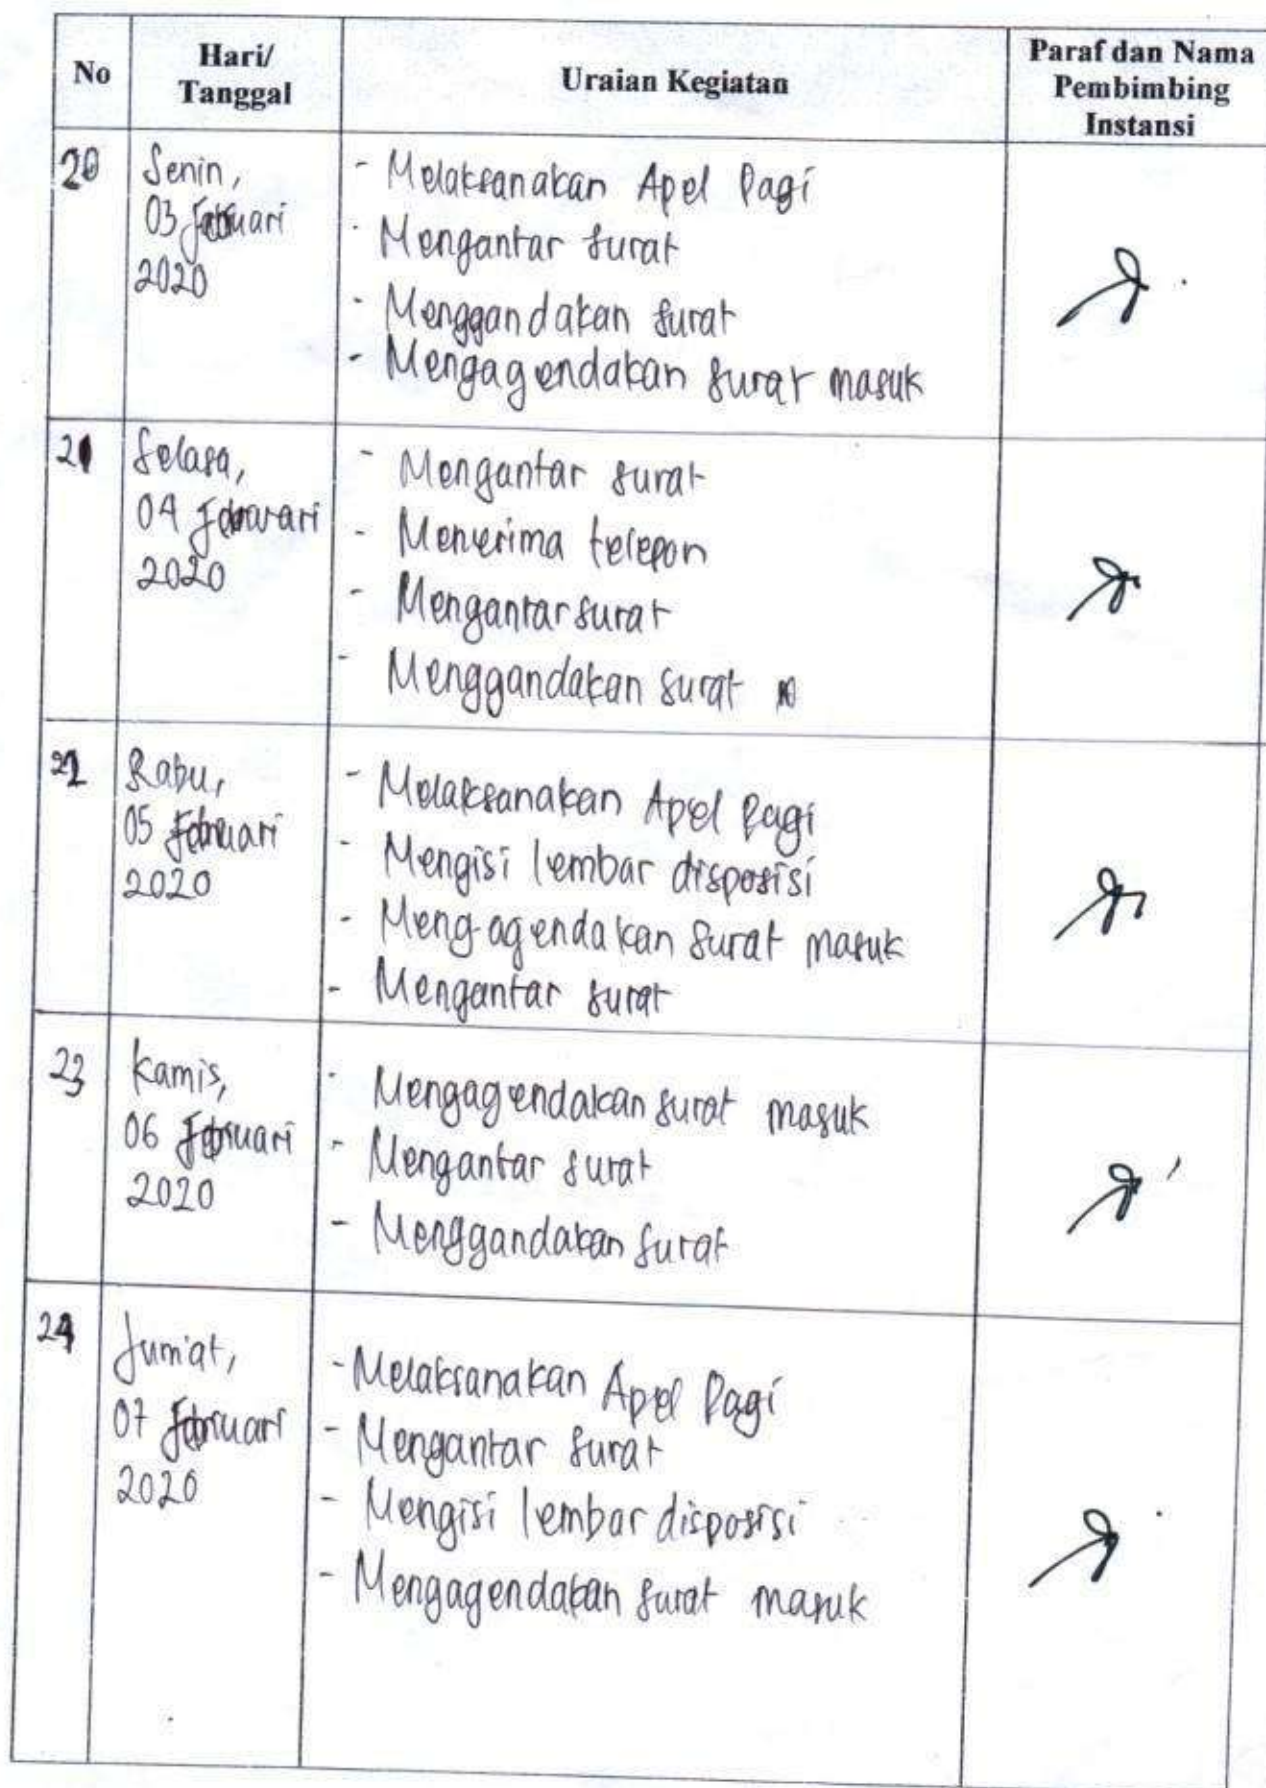 No
Hari/
Tanggal
Uraian Kegiatan
Paraf dan Nama
Pembimbing
Instansi
20
Senin,
03 Februari
2020
- Melaksanakan Apel Pagi
- Mengantar surat
- Menggandakan surat
- Mengagendakan surat masuk
21
Selasa,
04 Februari
2020
- Mengantar surat
- Menerima telepon
- Mengantar surat
- Menggandakan surat
22
Rabu,
05 Februari
2020
- Melaksanakan Apel Pagi
- Mengisi lembar disposisi
- Mengagendakan surat masuk
- Mengantar surat
23
Kamis,
06 Februari
2020
- Mengagendakan surat masuk
- Mengantar surat
- Menggandakan surat
24
Jum'at,
07 Februari
2020
- Melaksanakan Apel Pagi
- Mengantar surat
- Mengisi lembar disposisi
- Mengagendakan surat masuk